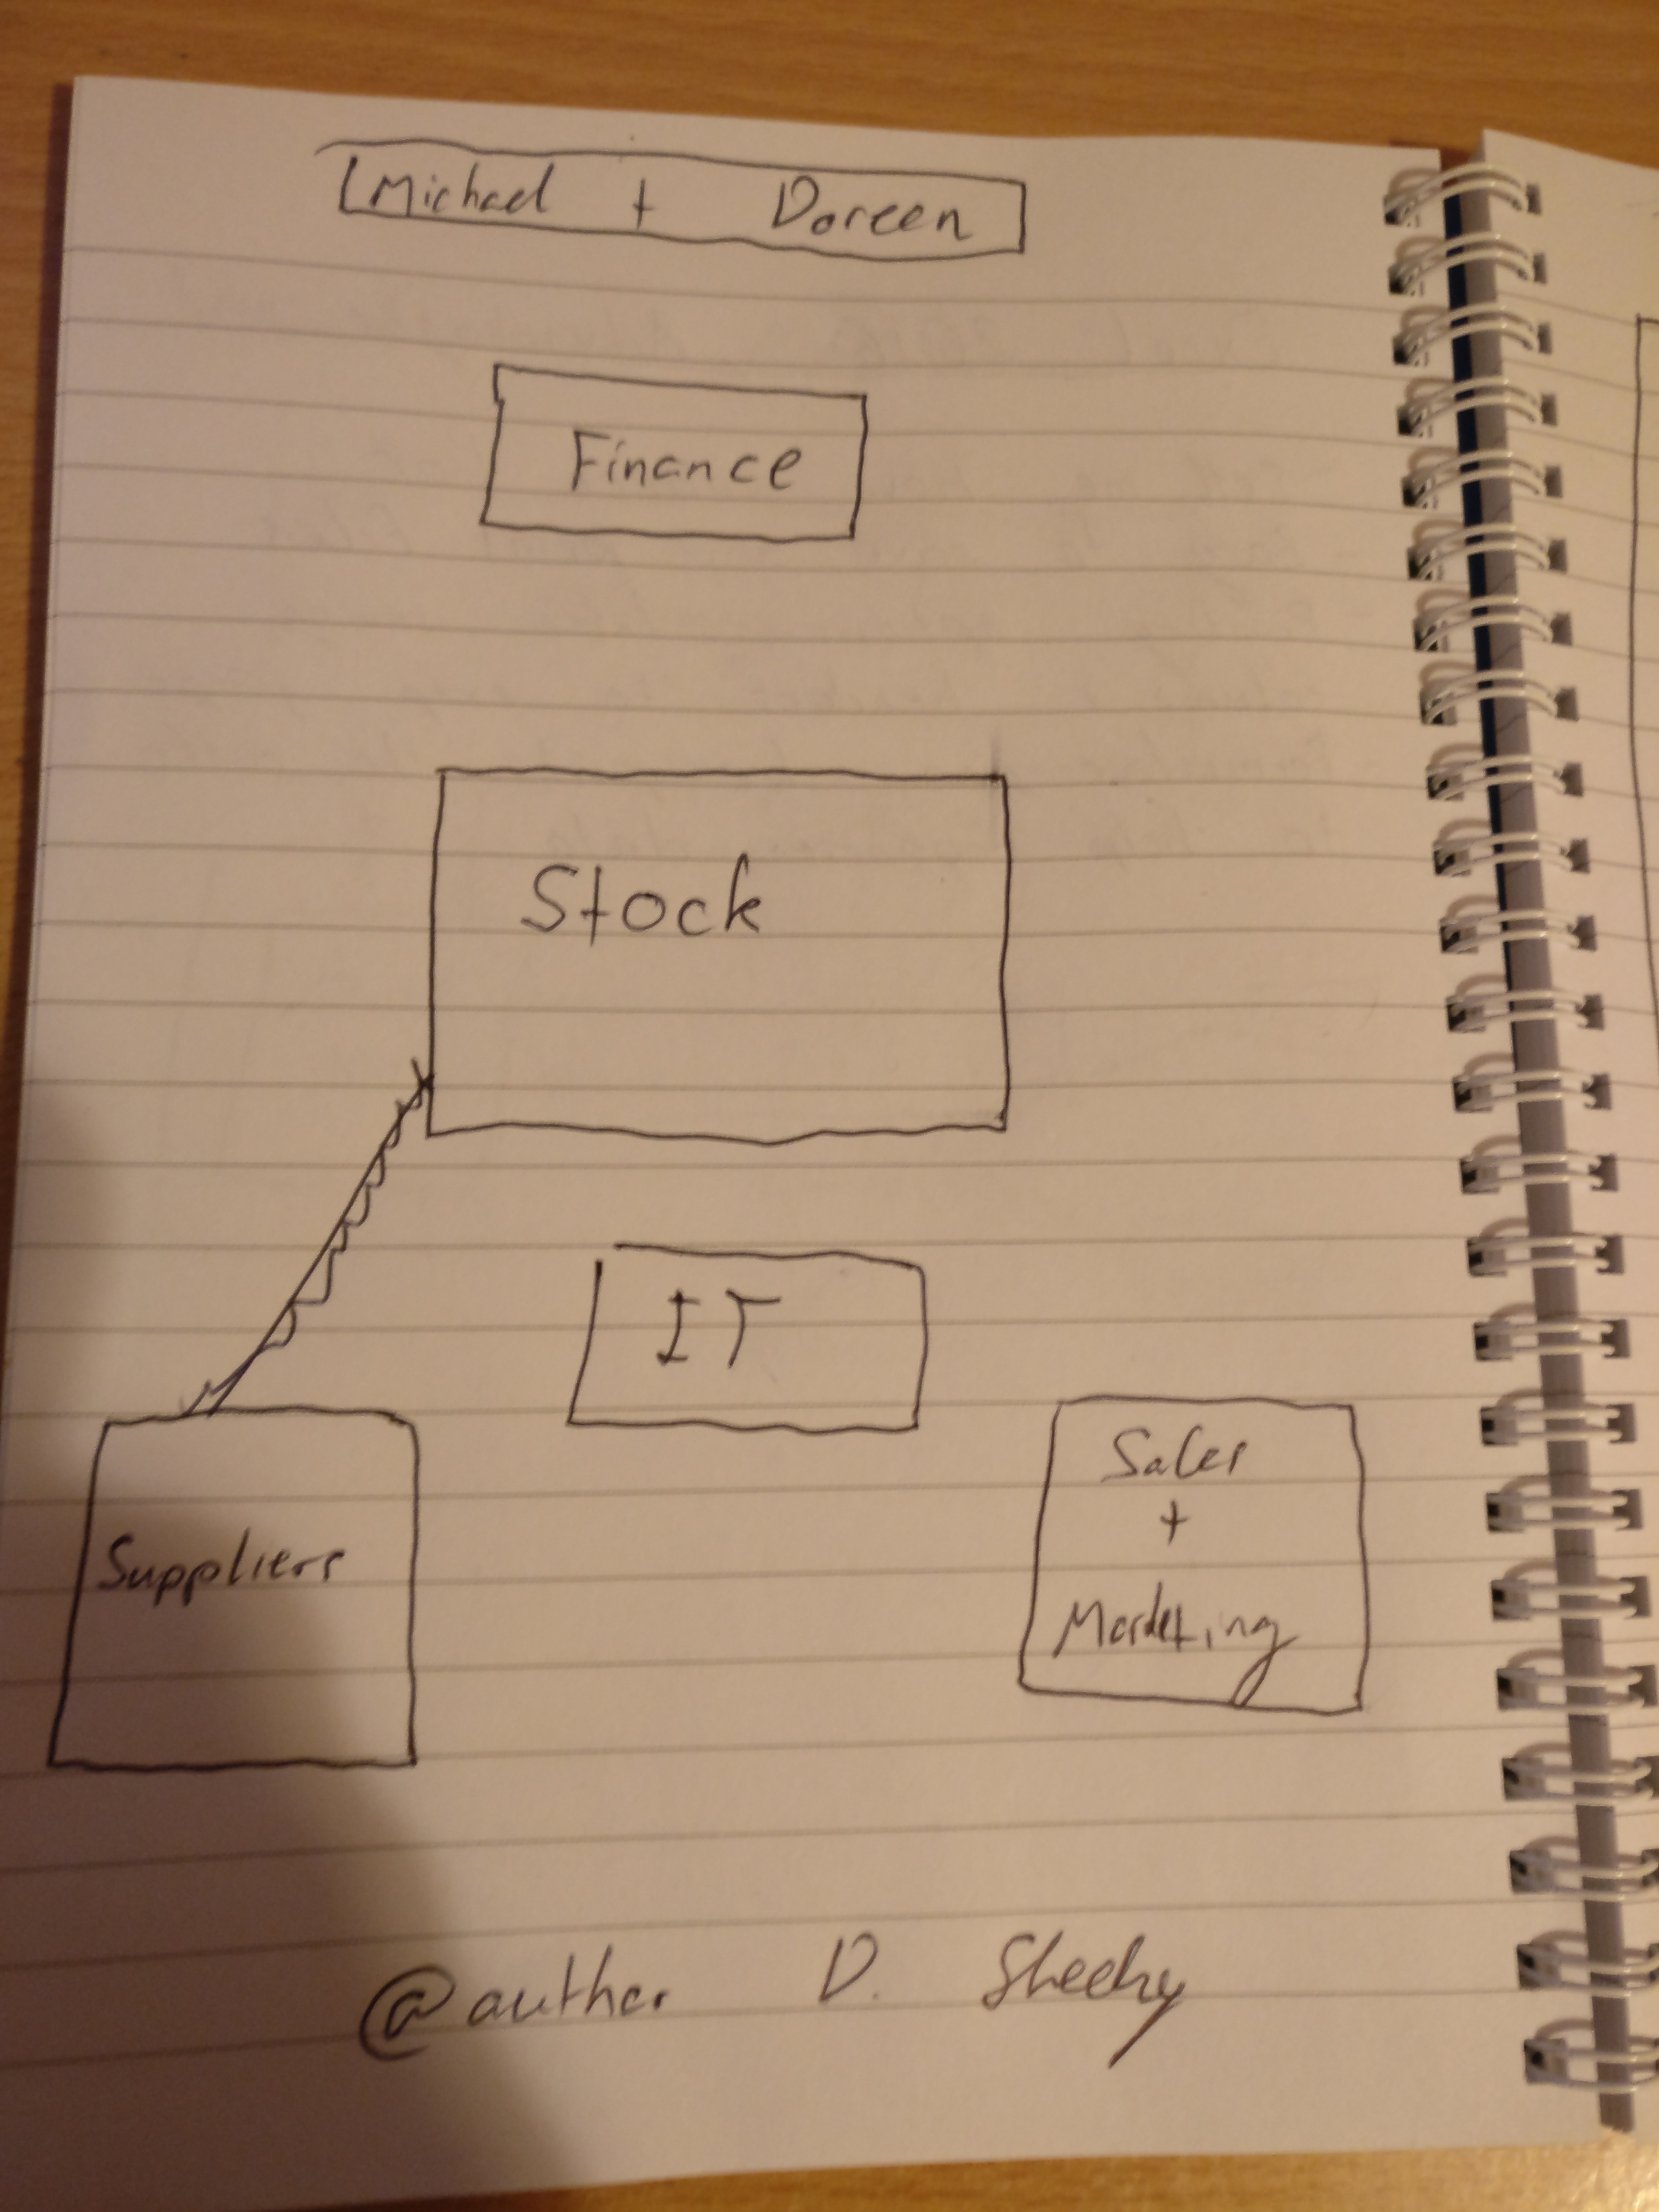 Michael + Doreen
Finance
Stock
IT
Suppliers
Sales
+
Marketing
@author D. Sheehy